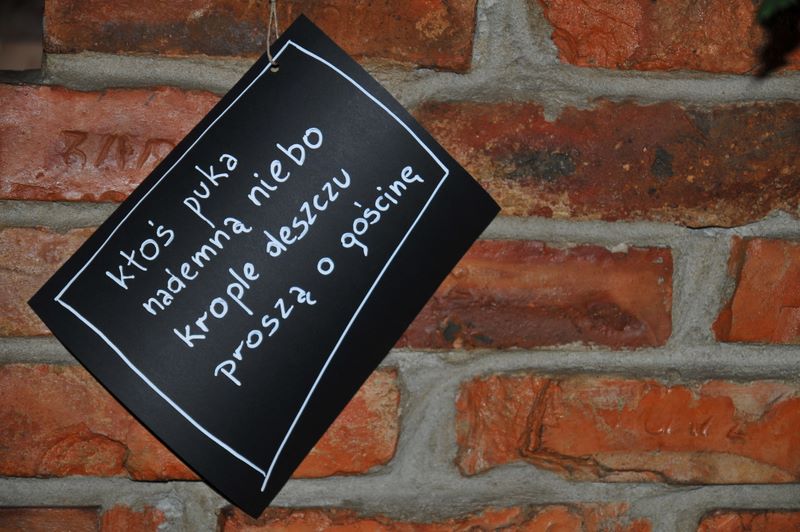 ktoś puka
nademną niebo
krople deszczu
proszą o gościnę